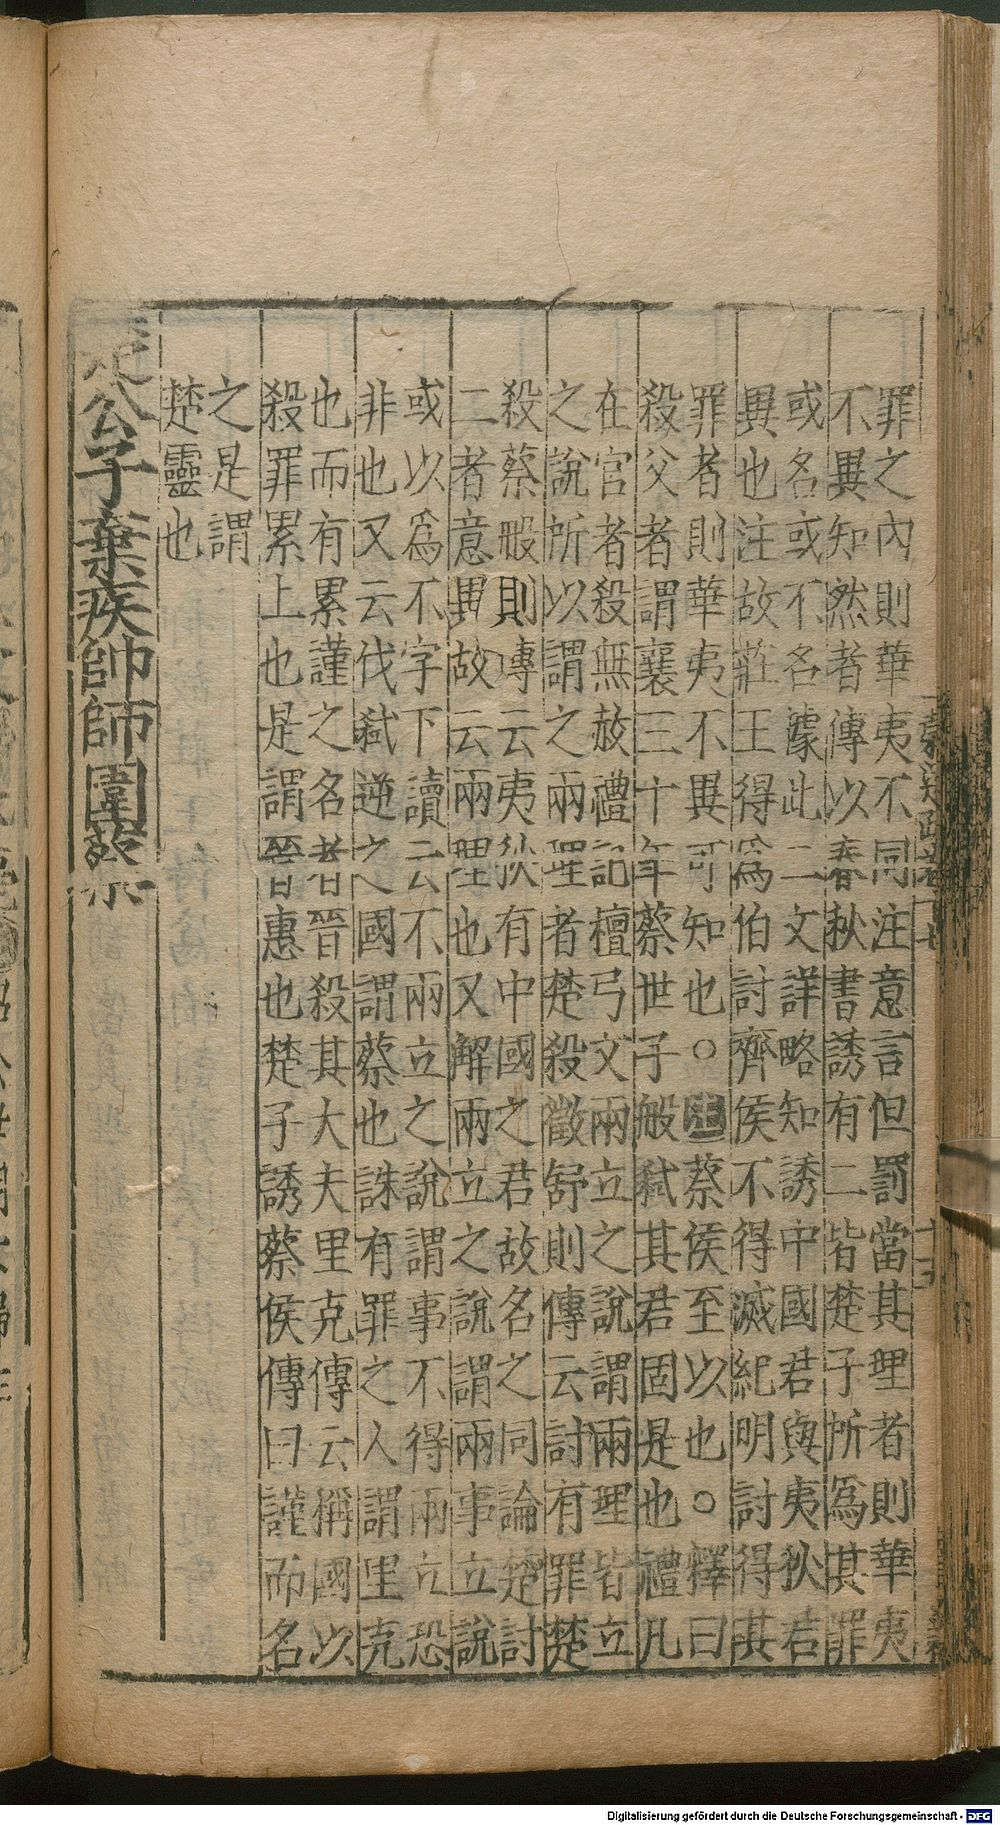 罪之內則華夷不同注意言但罰當其理者則華夷
不異知然者傳以春秋書誘有二皆楚子所爲其罪
或名或不名據此二文詳略知誘中國君與夷狄君
異也注故莊王得爲伯討齊侯不得滅紀明討得其
罪者則華夷不異可知也○注蔡侯至以也○釋曰
殺父者謂襄三十年蔡世子般弒其君固是也禮凡
在官者殺無赦禮記檀弓文兩立之說謂兩理皆立
之說所以謂之兩理者楚殺徵舒則傳云討有罪楚
殺蔡般則傳云夷狄有中國之君故名之同論楚討
二者意異故云兩理也又解兩立之說謂兩事立說
或以爲不字下讀云不兩立之說謂事不得兩立恐
非也又云伐弒逆之國謂蔡也誅有罪之人謂里克
也而有累謹之名者晉殺其大夫里克傳云稱國以
殺罪累上也是謂晉惠也楚子誘蔡侯傳曰謹而名
之是謂
楚靈也
楚公子棄疾帥師圍蔡
Digitalisierung gefördert durch die Deutsche Forschungsgemeinschaft - DFG